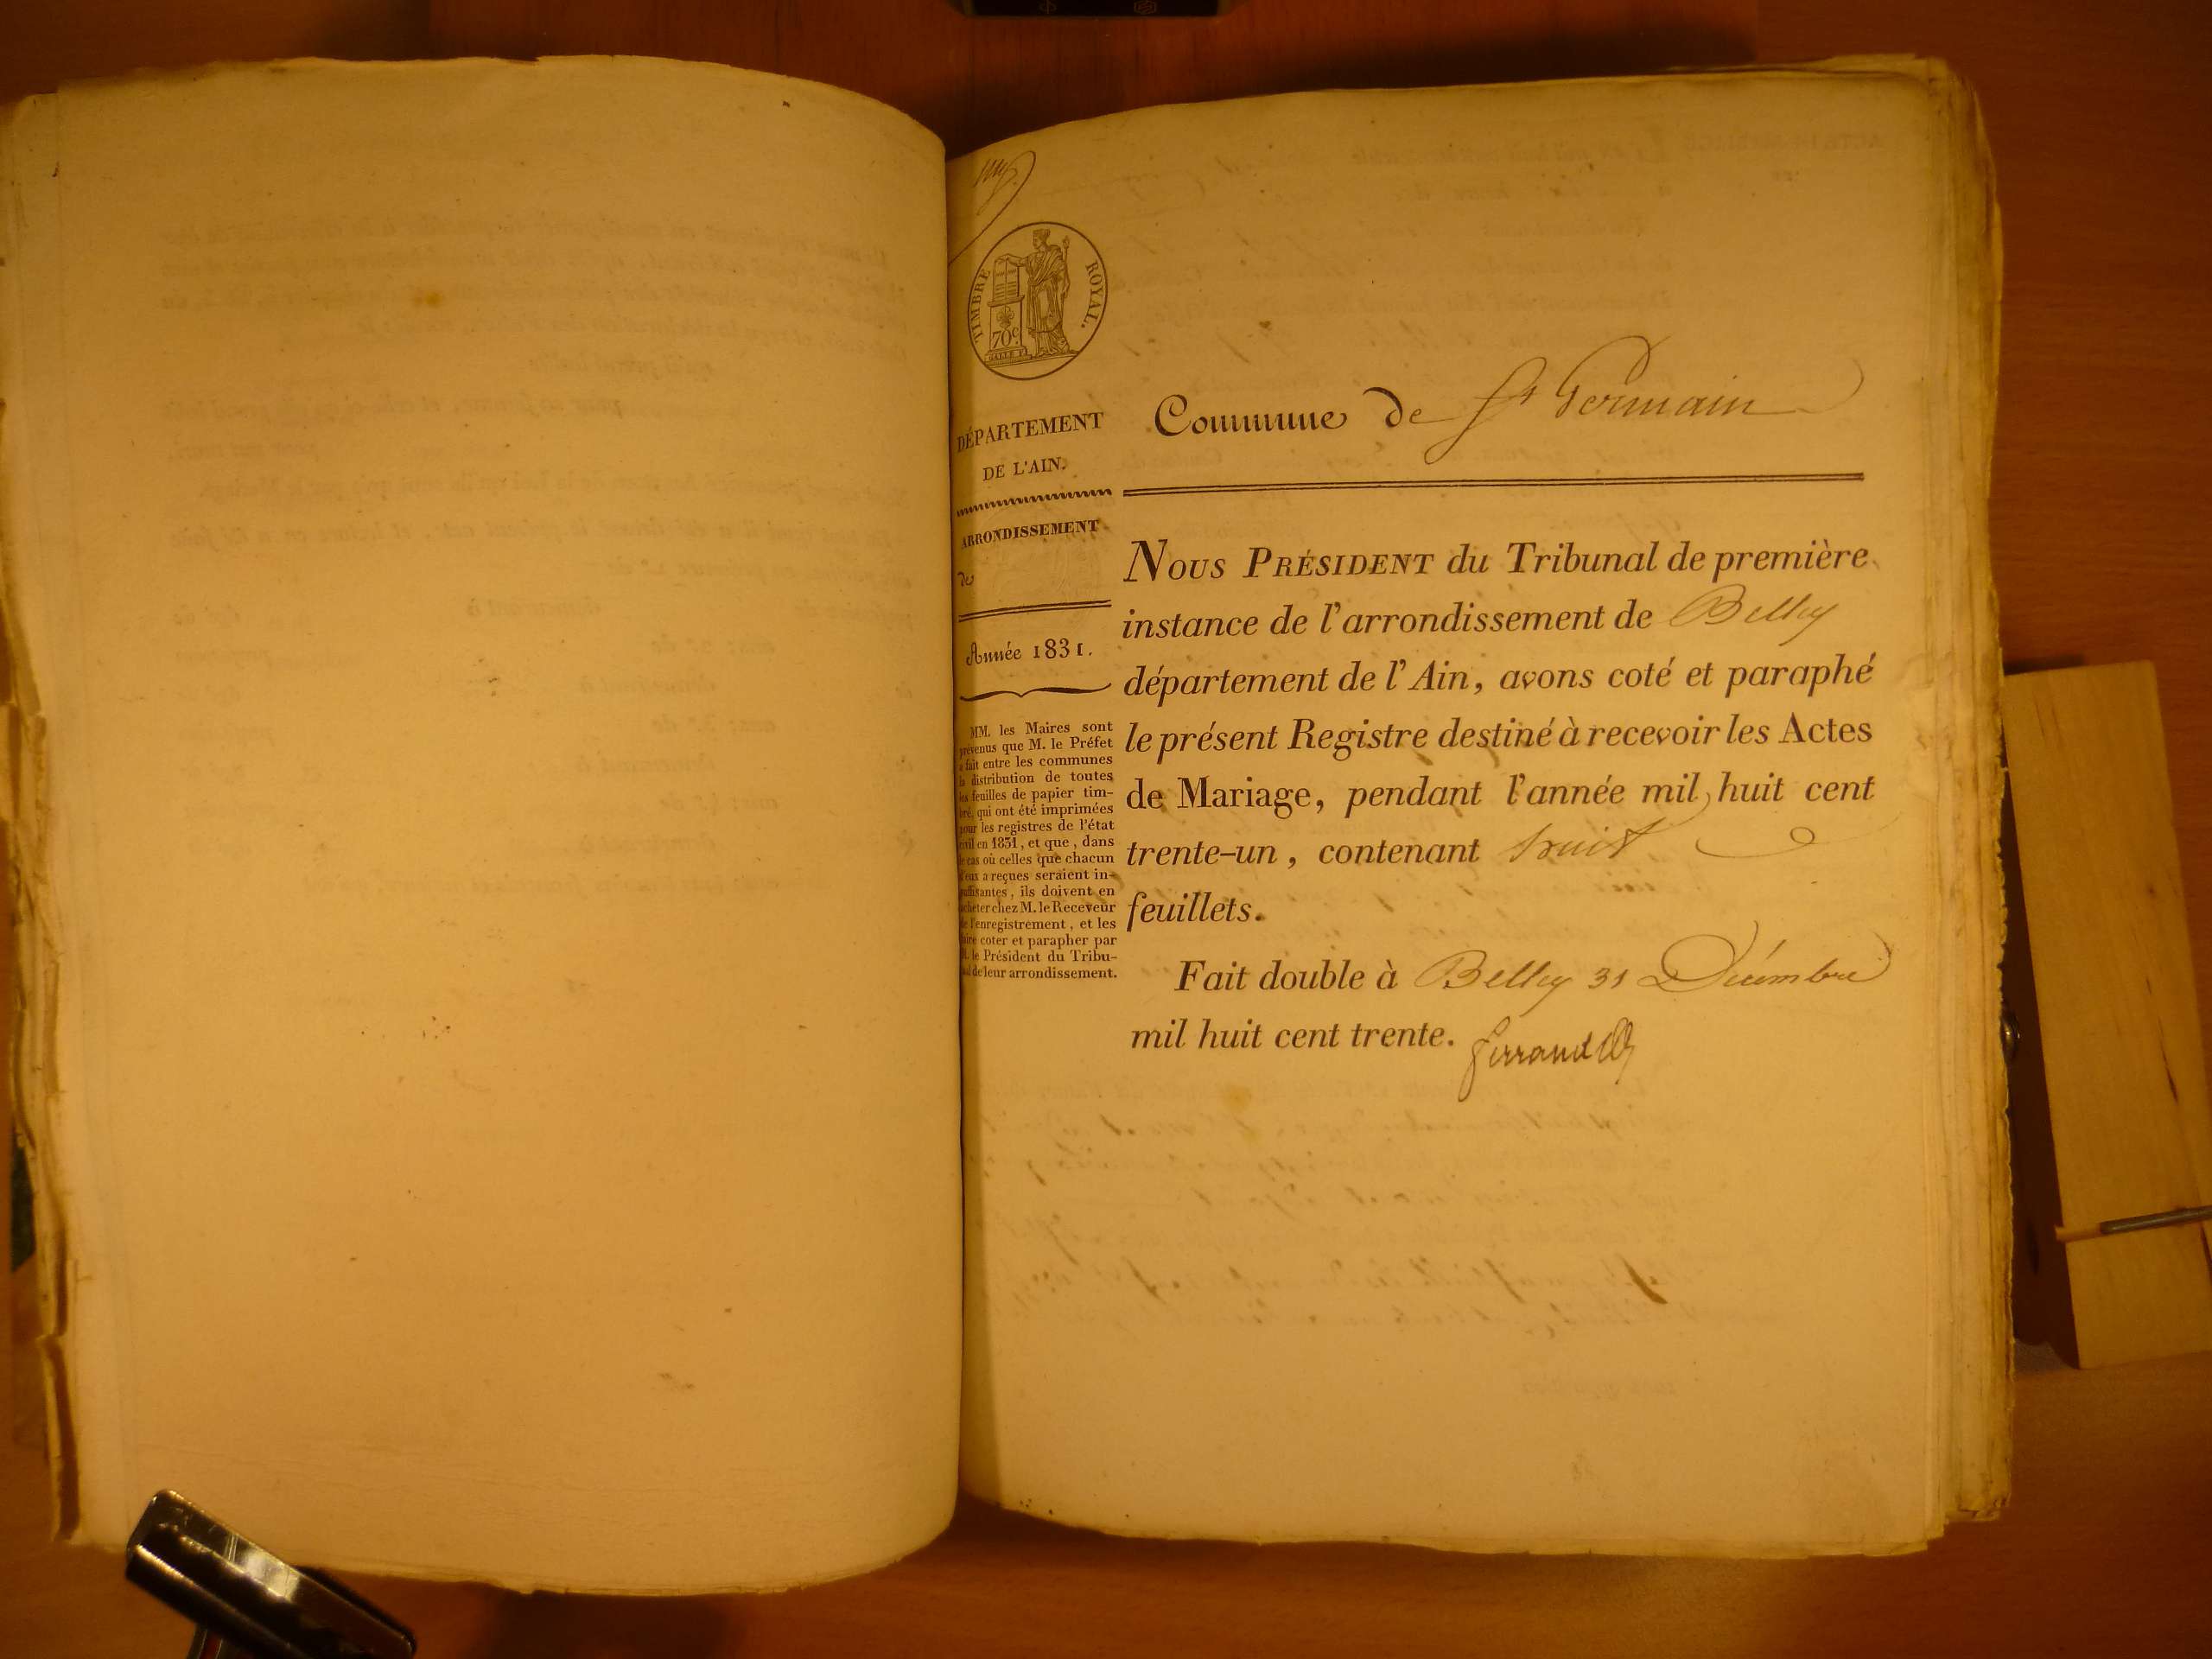 TIMBRE ROYAL.
70 c.
DÉPARTEMENT
DE L'AIN.
ARRONDISSEMENT
de
Année 1831.
MM. les Maires sont
prévenus que M. le Préfet
a fait entre les communes
la distribution de toutes
les feuilles de papier tim-
bré, qui ont été imprimées
pour les registres de l'état
civil en 1831, et que, dans
le cas où celles que chacun
d'eux a reçues seraient in-
suffisantes, ils doivent en
acheter chez M. le Receveur
de l'enregistrement, et les
faire coter et parapher par
M. le Président du Tribu-
nal de leur arrondissement.
Commune de St Germain
NOUS PRÉSIDENT du Tribunal de première
instance de l'arrondissement de Belley
département de l'Ain, avons coté et paraphé
le présent Registre destiné à recevoir les Actes
de Mariage, pendant l'année mil huit cent
trente-un, contenant huit
feuillets.
Fait double à Belley 31 Décembre
mil huit cent trente.